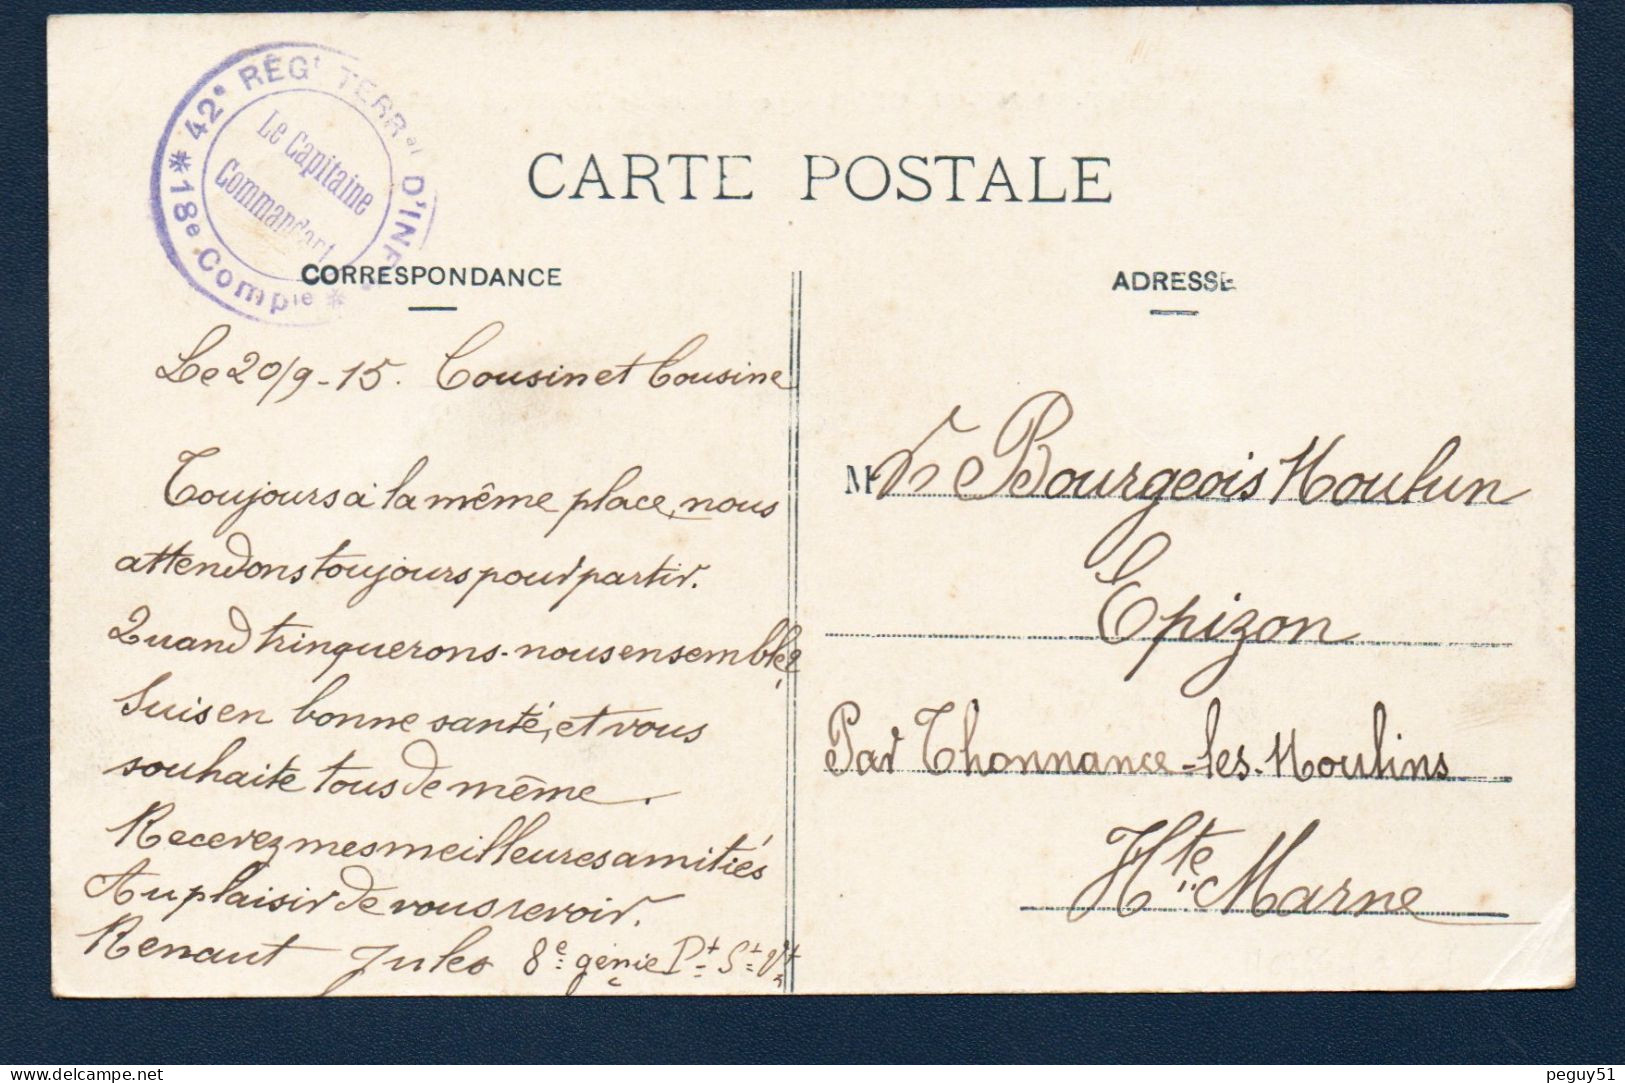 42e RÉGt TERRal D'INFie
* 18e Compie *
Le Capitaine
Commandant
CARTE POSTALE
CORRESPONDANCE
ADRESSE
Le 20/9-15. Cousin et Cousine
Toujours à la même place, nous
attendons toujours pour partir.
Quand trinquerons-nous ensemble?
Suis en bonne santé, et vous
souhaite tous de même.
Recevez mes meilleures amitiés
Au plaisir de vous revoir.
Renaut Jules 8e génie Pt St Vt
Mr Bourgeois Moulun
Epizon
Par Thonnance-les-Moulins
Hte Marne
peguy51